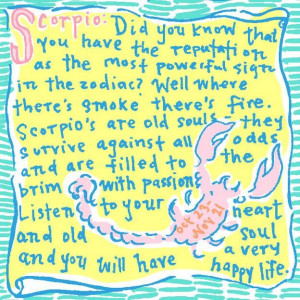 Scorpio: Did you know that
you have the reputation
as the most powerful sign
in the zodiac? Well where
there's smoke there's fire.
Scorpio's are old souls - they
survive against all odds
and are filled to the
brim with passion
Listen to your heart
and old soul
and you will have a very
happy life.
oct 23 -
Nov 21